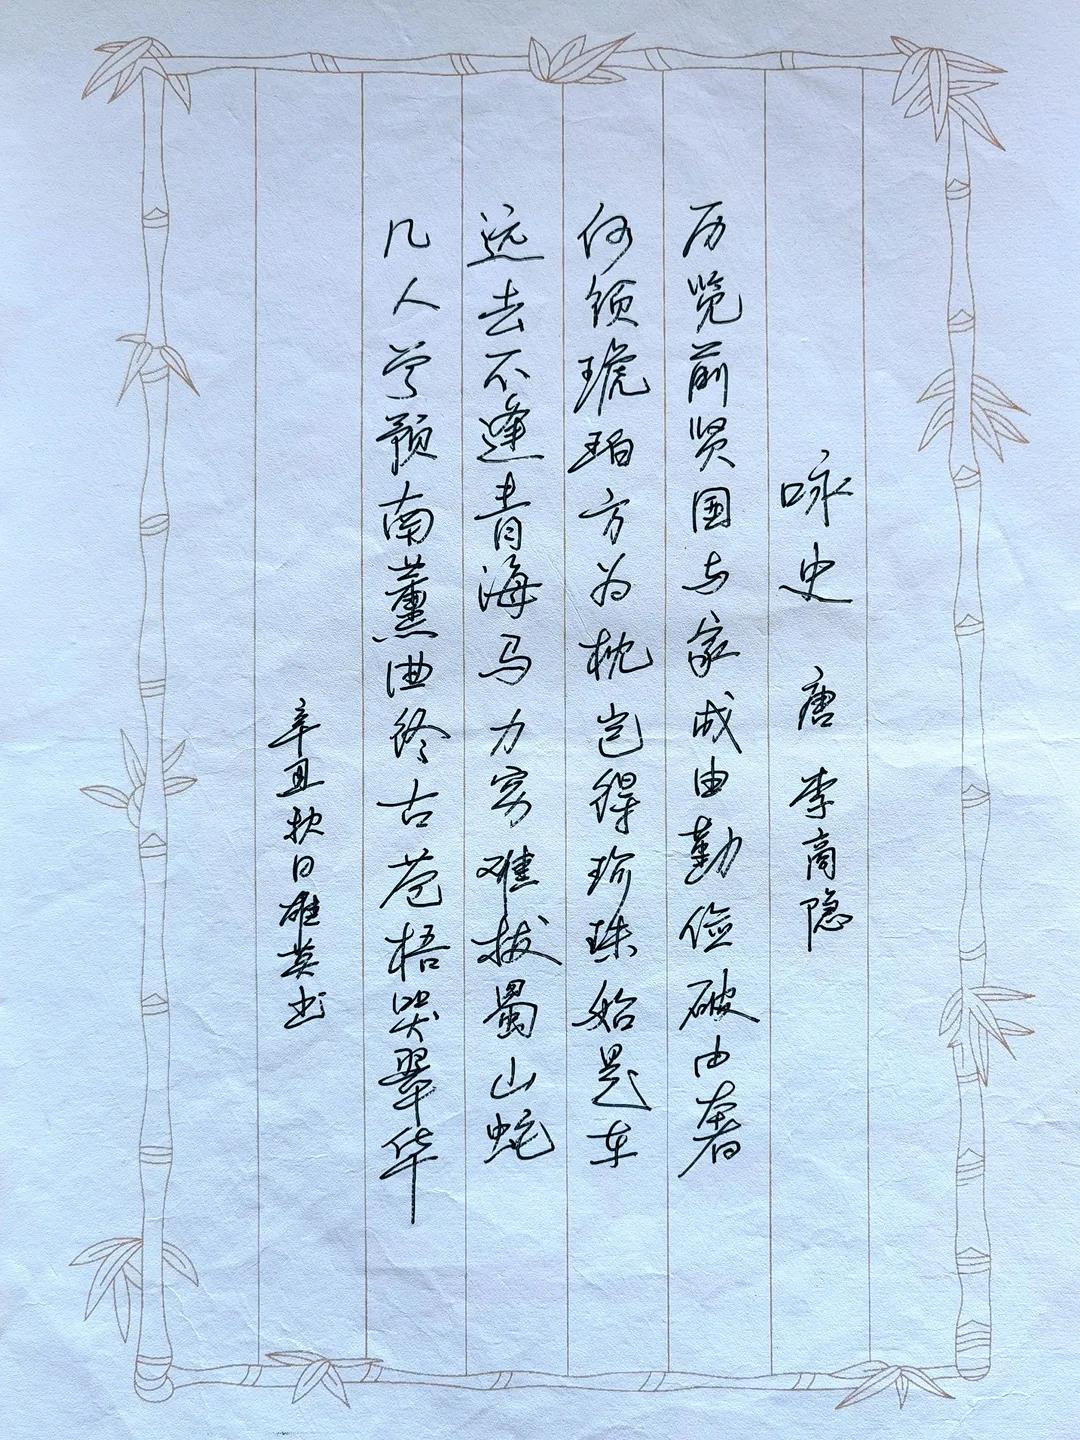 咏史 唐 李商隐
历览前贤国与家成由勤俭破由奢
何须琥珀方为枕岂得珍珠始是车
远去不逢青海马力穷难拔蜀山蛇
几人曾预南薰曲终古苍梧哭翠华
辛丑秋日雄英书